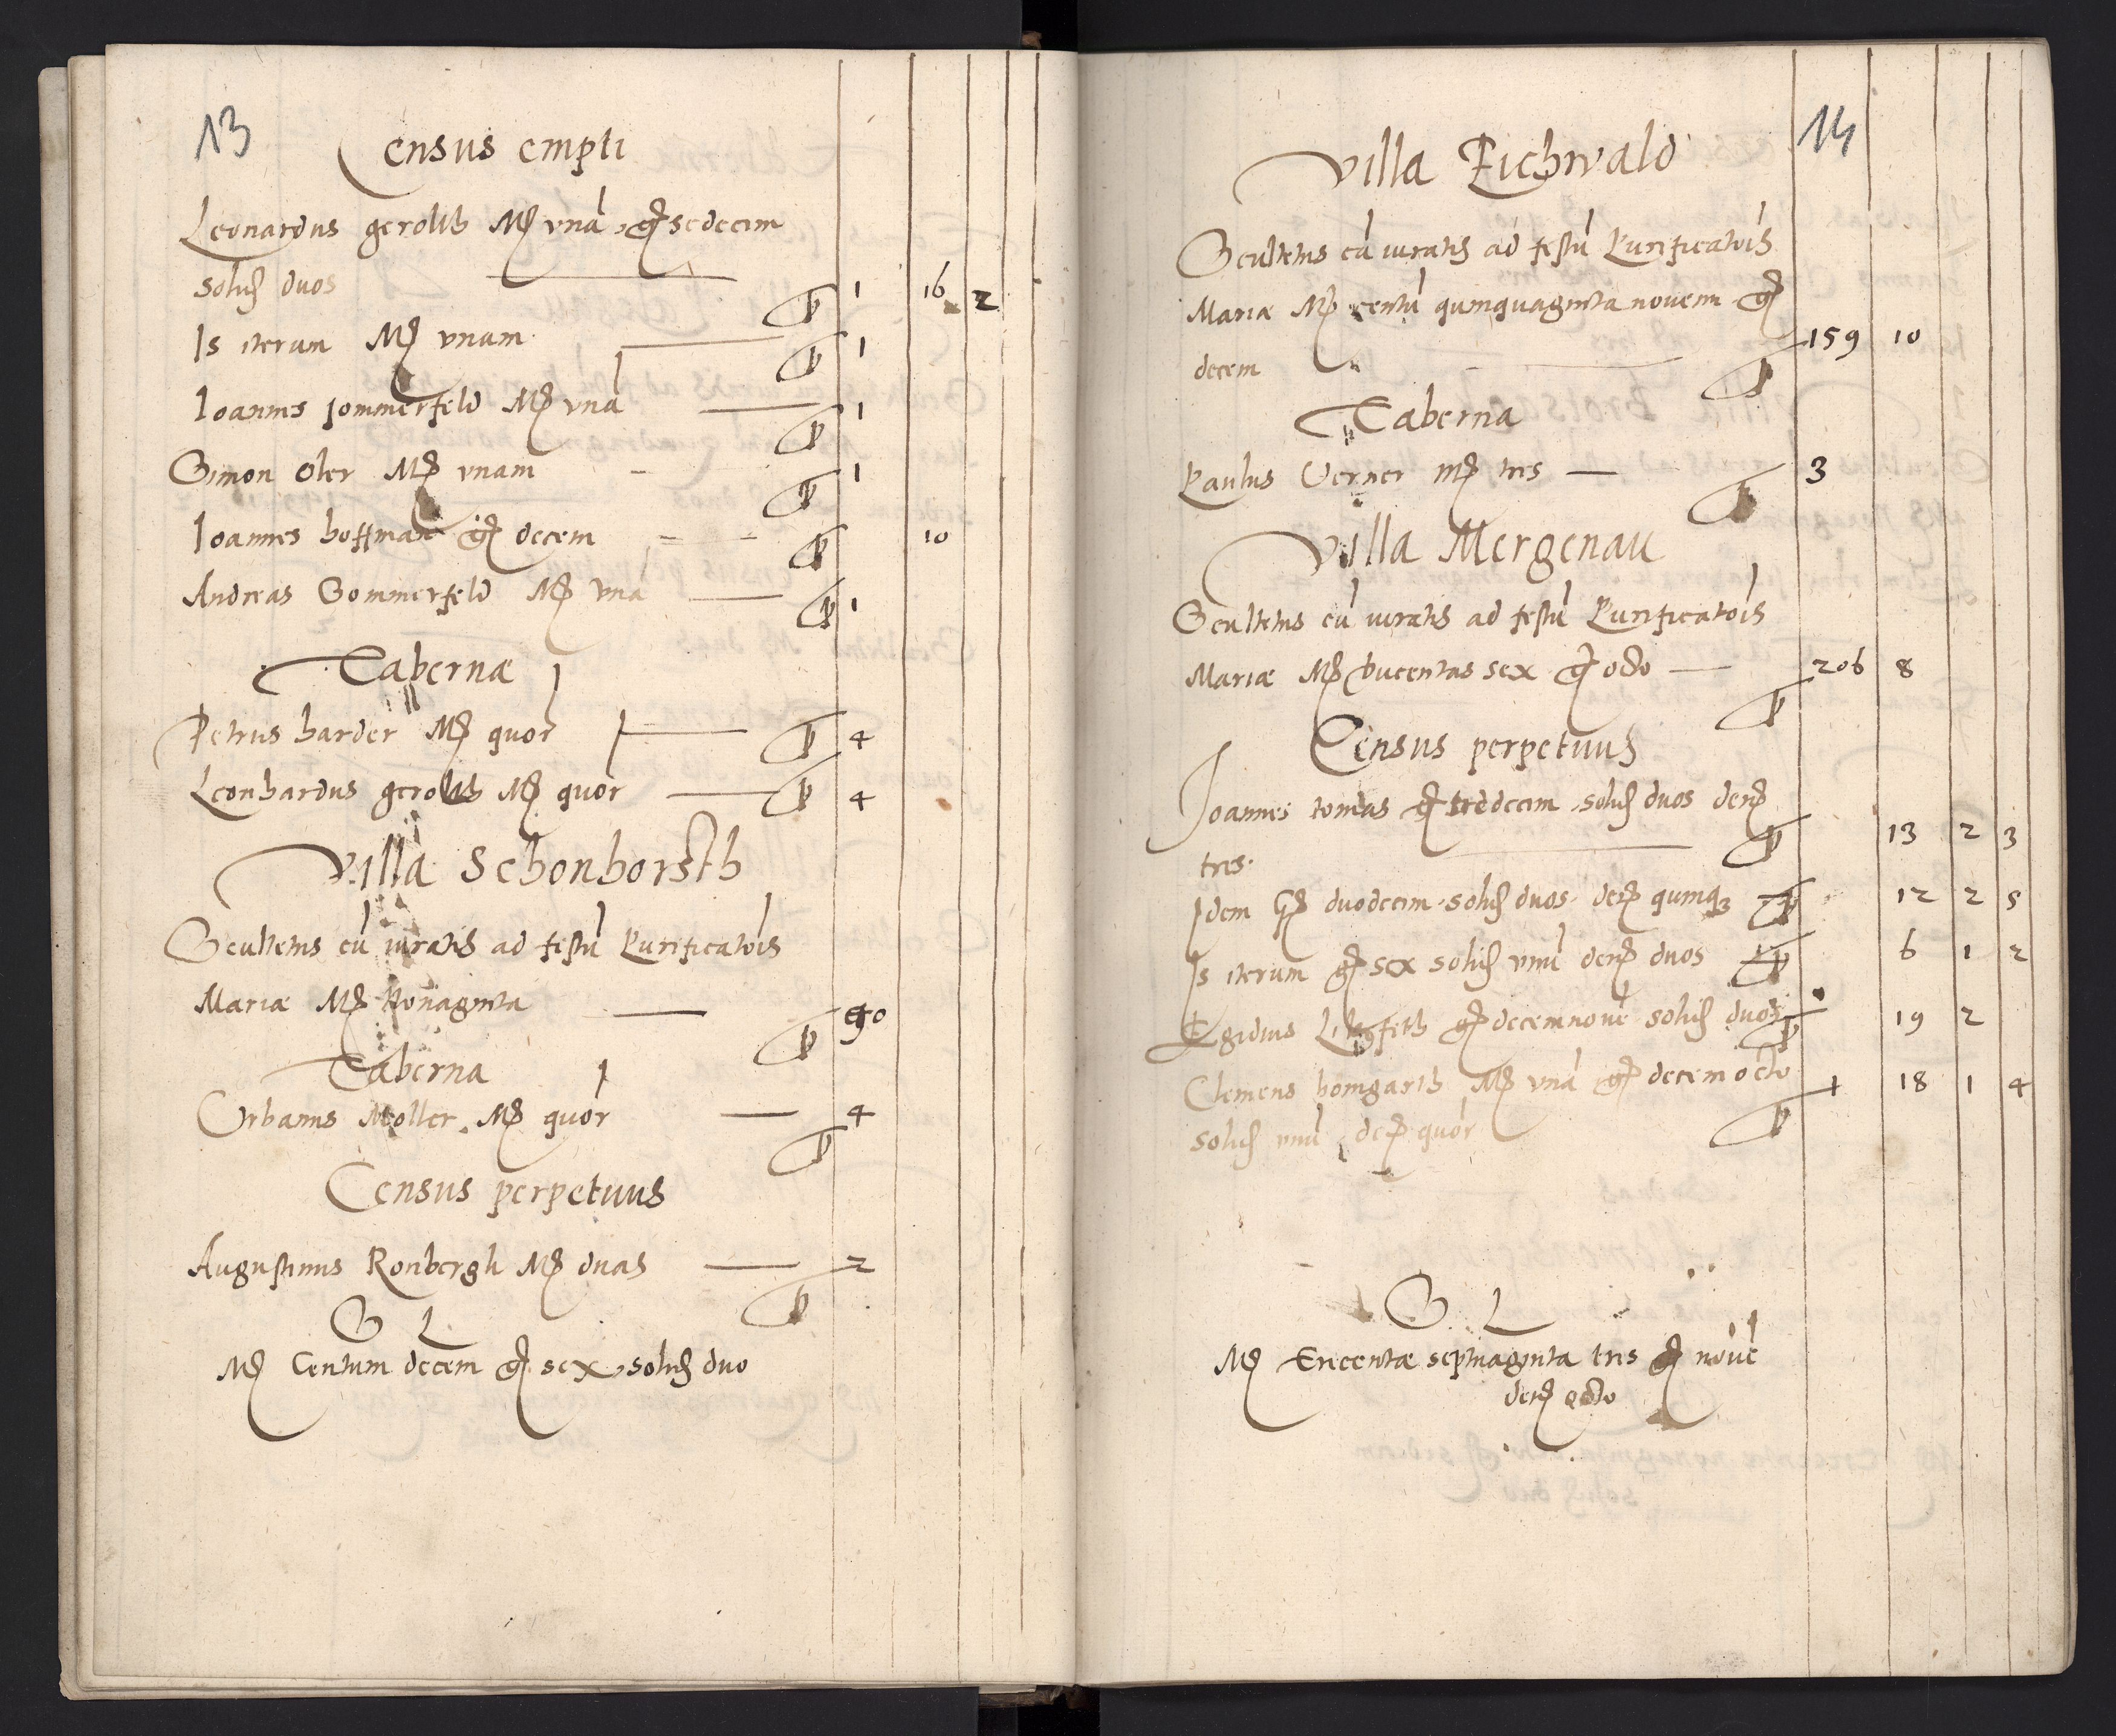 13
Census empti
Leonardus gerolth Mꝭ vnā, gꝭ sedecim
solidꝭ duos 1 16 2
Is iterum Mꝭ vnam 1
Ioannes sommerfeld Mꝭ vnā 1
Simon Oler Mꝭ vnam 1
Ioannes hoffman gꝭ decem 10
Andreas Sommerfeld Mꝭ vnā 1
Tabernæ
Petrus harder Mꝭ quor 4
Leonhardus gerolth Mꝭ quor 4
Villa Schonhorsth
Scultetus cū iuratis ad festū Purificatois
Mariæ Mꝭ Nonaginta 90
Taberna
Vrbanus Moller Mꝭ quor 4
Census perpetuus
Augustinus Ronbergh Mꝭ duas 2
S L
Mꝭ Centum decem gꝭ sex, solidꝭ duo
14
Villa Eichwald
Scultetus cū iuratis ad festū Purificatois
Mariæ Mꝭ centū quinquaginta novem gꝭ
decem 159 10
Taberna
Paulus Verner Mꝭ tres 3
Villa Mergenau
Scultetus cū iuratis ad festū Purificatois
Mariæ Mꝭ ducentas sex gꝭ octo 206 8
Census perpetuus
Ioannes tomas gꝭ tredecim solidꝭ duos denꝭ
tres 13 2 3
Idem Gꝭ duodecim solidꝭ duos denꝭ quinqꝫ 12 2 5
Is iterum gꝭ sex solidꝭ vnū denꝭ duos 6 1 2
Egidius gꝭ decemnovē solidꝭ duos 19 2
Clemens homgarth Mꝭ vnā gꝭ decemocto 1 18 1 4
solidꝭ vnū deꝭ quor
S L
Mꝭ Trecentæ septuaginta tres gꝭ novē
denꝭ octo